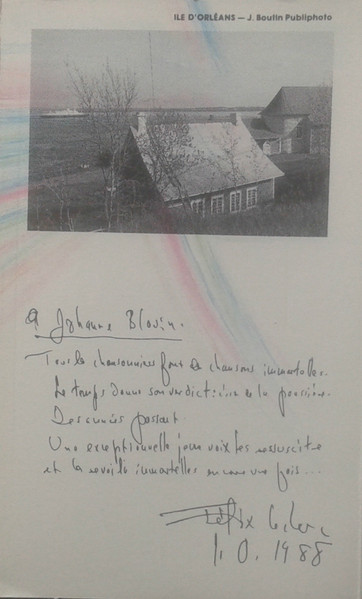 ILE D'ORLÉANS — J. Boulin Publiphoto
A Johanne Blouin.
Tous les chansonniers font des chansons immortelles.
Le temps donne son verdict : de la poussière.
Des années passent
Une exceptionnelle jeune voix les ressuscite
et les revoilà immortelles encore une fois...
Félix Leclerc
I. O. 1988